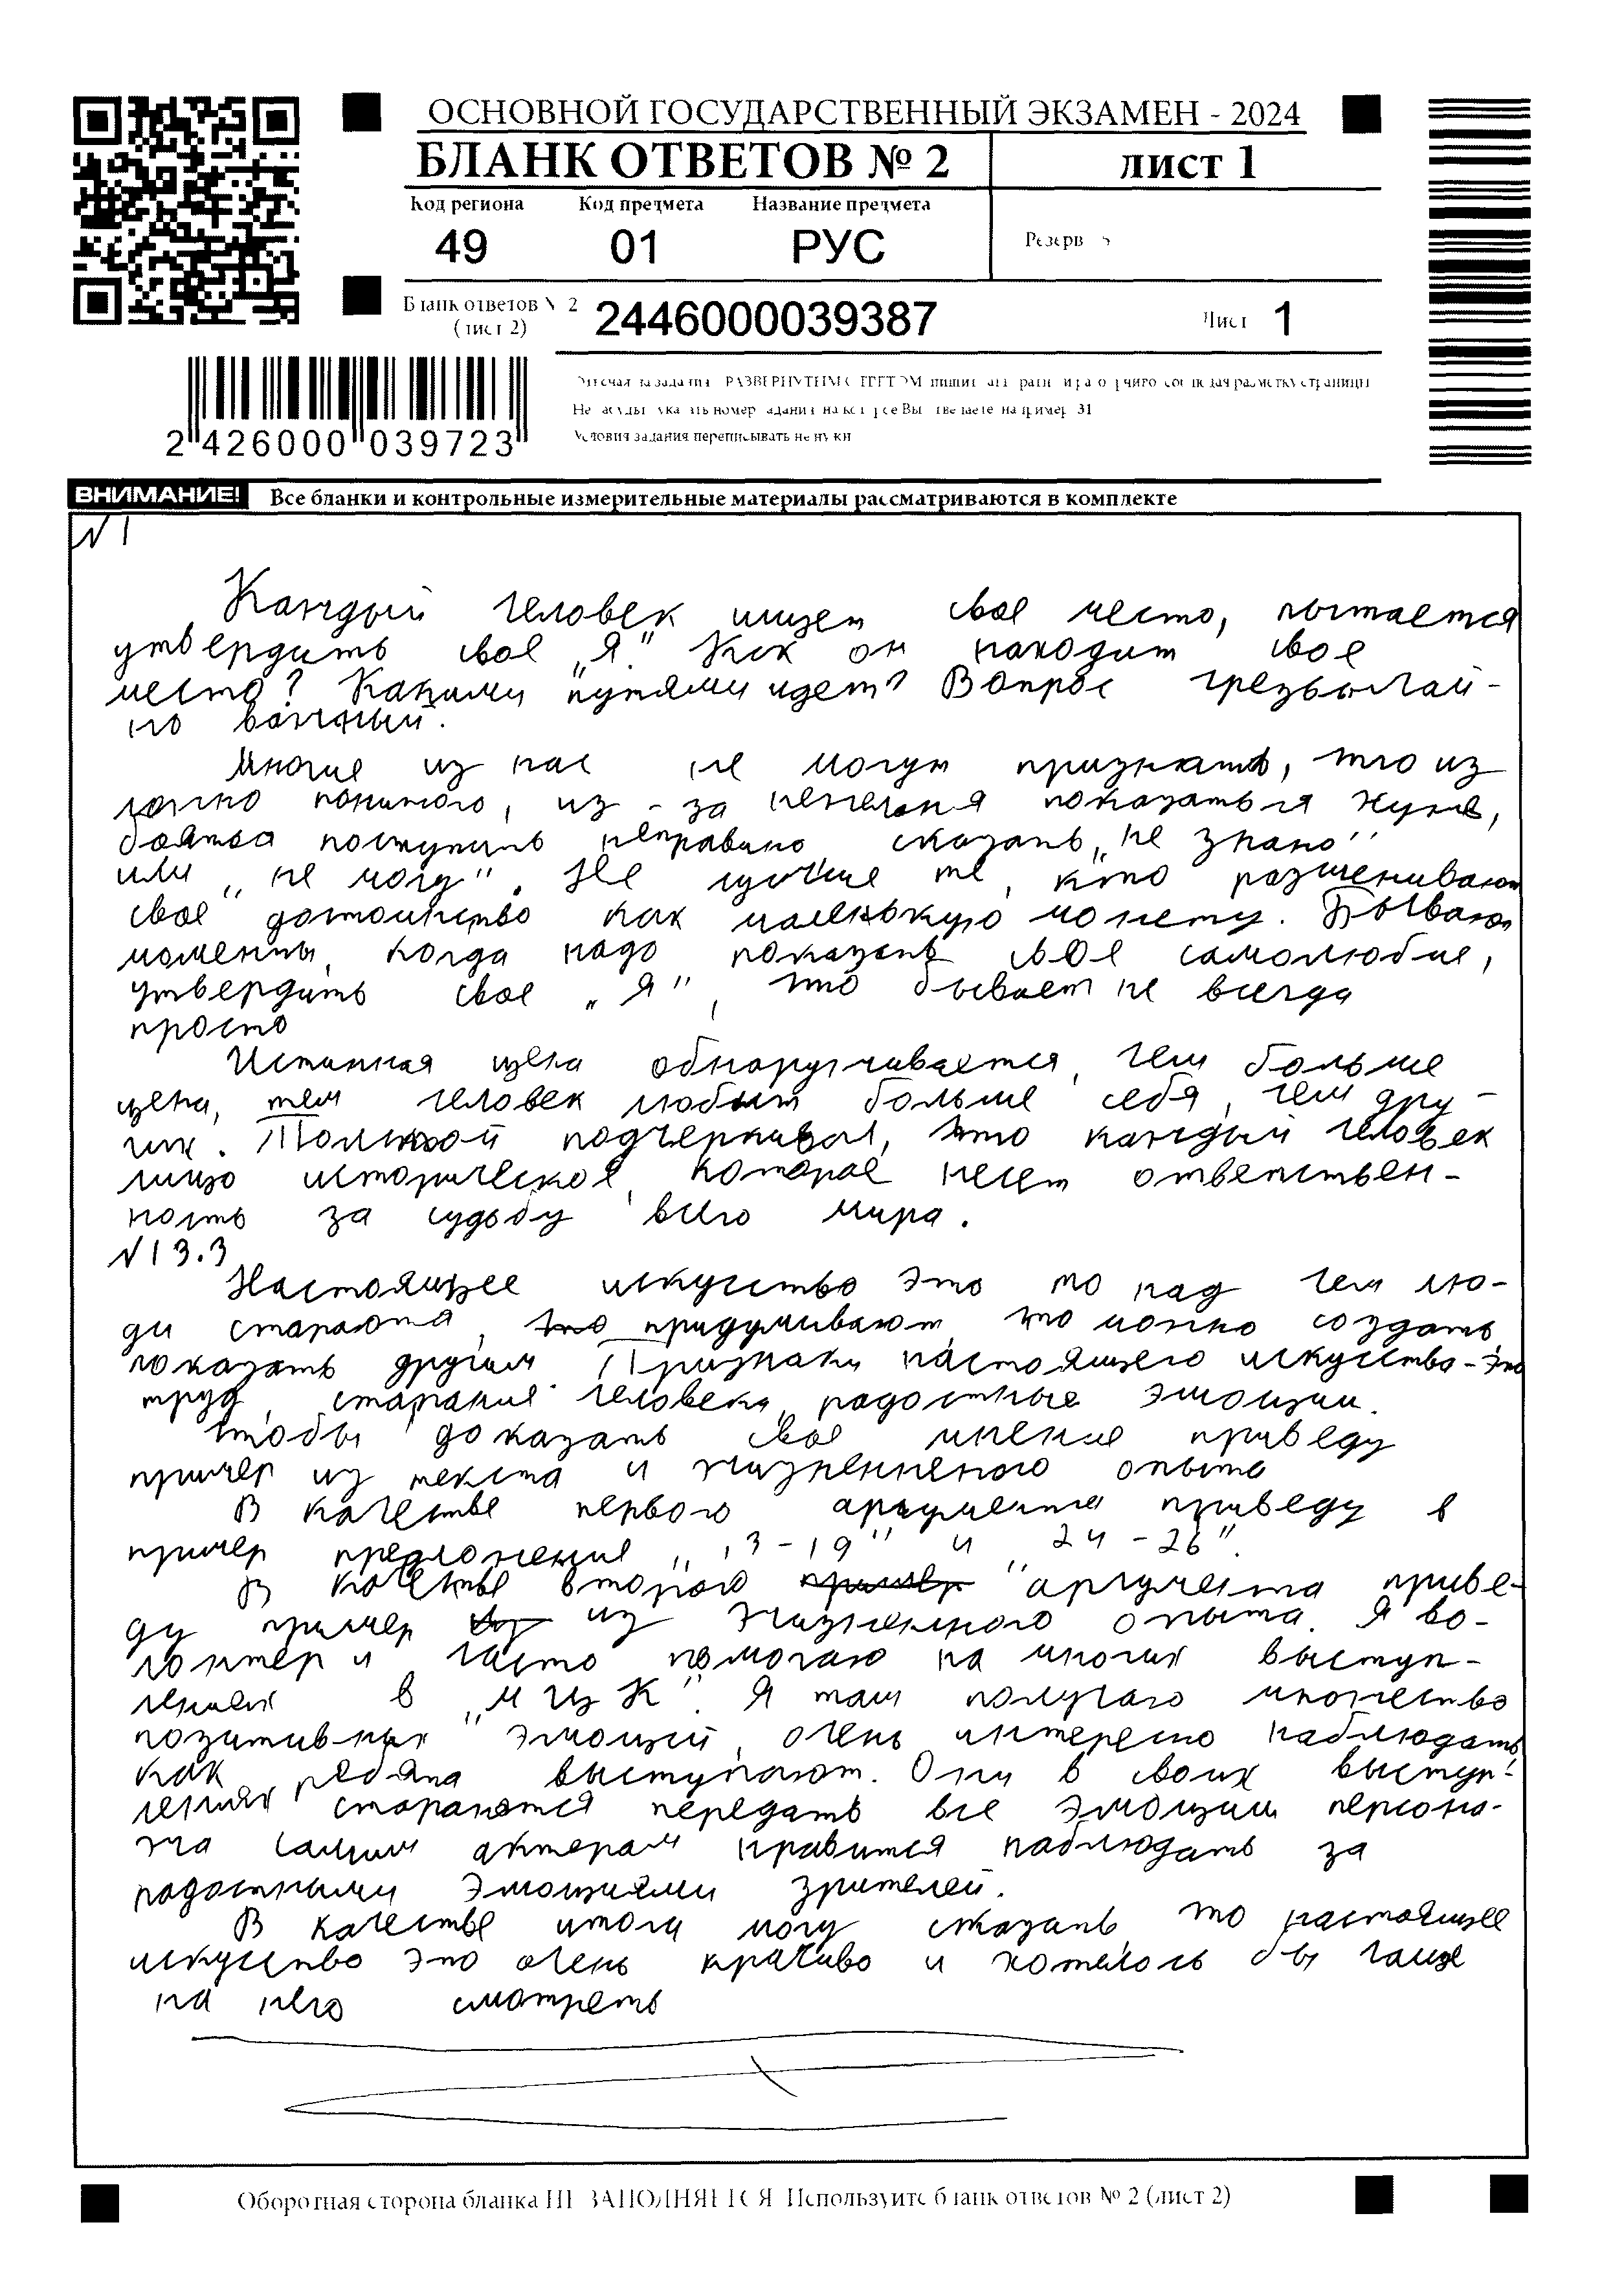 ОСНОВНОЙ ГОСУДАРСТВЕННЫЙ ЭКЗАМЕН - 2024
БЛАНК ОТВЕТОВ № 2
лист 1
Код региона Код предмета Название предмета
49 01 РУС
Резерв
Бланк ответов № 2
(лист 2)
2446000039387
Лист 1
2 426000 039723
Условия задания переписывать не нужно
ВНИМАНИЕ! Все бланки и контрольные измерительные материалы рассматриваются в комплекте
№ 1
Каждый человек ищет свое место, пытается
утвердить свое „Я". Как он находит свое
место? Какими путями идет? Вопрос чрезвычай-
но важный.
Многие из нас не могут признать, что из
ложно понитого, из-за нежелания показаться хуже,
боятся поступить неправино сказать „не знаю"
или „не могу". Не те, кто разменивают
свое достоинство как маленькую монету. Бывают
моменты, когда надо показать свое самолюбие,
утвердить свое „Я", это бывает не всегда
просто
Истинная цена обнаруживается, чем больше
цена, тем человек любит больше себя, чем дру-
гих. Толстой подчеркивал, что каждый человек
лицо историческое, которое несет ответствен-
ность за судьбу всего мира.
№ 13.3
Настоящее искусство это то над чем лю-
ди стараются, придумывают, что можно создать
показать другим. Признаки настоящего искусства-это
труд, старания человека, радостные эмоции.
Чтобы доказать свое мнение приведу
пример из текста и жизненненого опыта
В качестве первого аргумента приведу в
пример предложения „13-19" и „24-26".
В качестве второго аргумента приве-
ду пример из жизненного опыта. Я во-
лонтер и часто помогаю на многих выступ-
лениях в „МЦК". Я там получаю множество
позитивных эмоций, очень интересно наблюдать
как ребята выступают. Они в своих выступ-
лениях стараются передать все эмоции персона-
жа самим актерам нравится наблюдать за
радостными эмоциями зрителей.
В качестве итога могу сказать, что настоящее
искусство это очень красиво и хотелось бы чаще
на него смотреть
Оборотная сторона бланка НЕ ЗАПОЛНЯЕТСЯ. Используйте бланк ответов № 2 (лист 2)